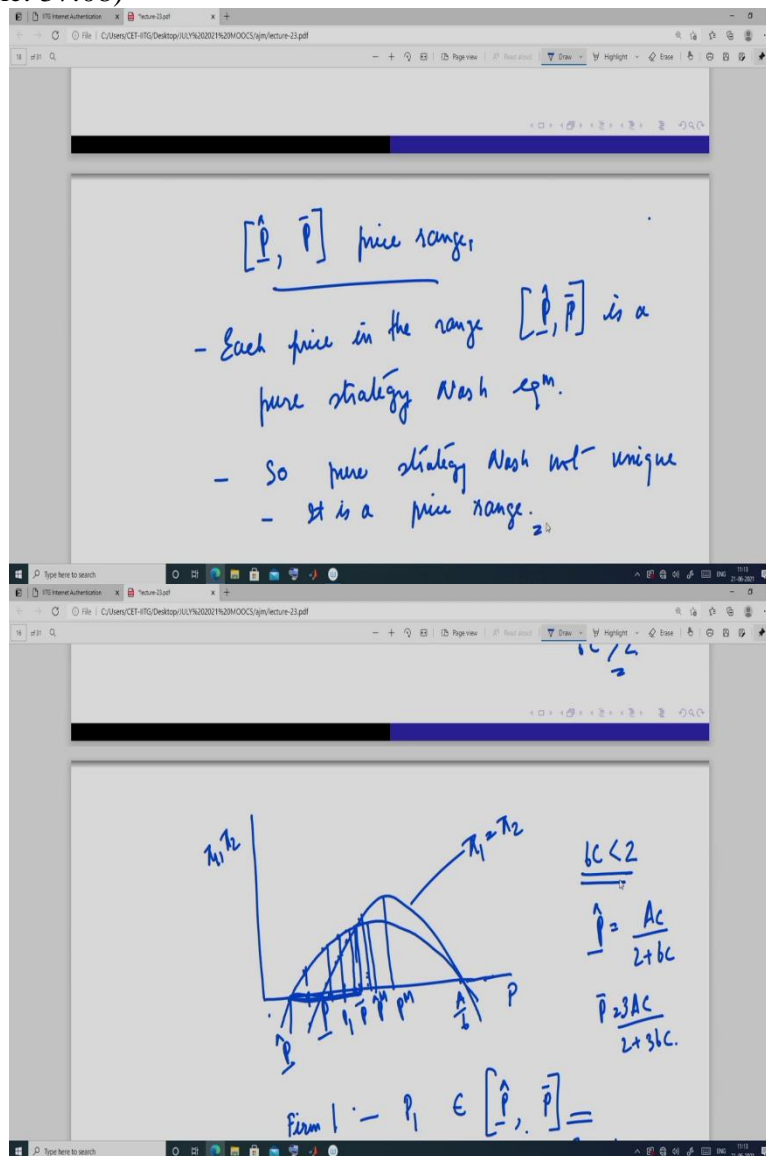 IITG Internet Authentication
lecture-23.pdf
File | C:/Users/CET-IITG/Desktop/JULY%202021%20MOOCS/ajm/lecture-23.pdf
18 of 31
Page view
Draw
Highlight
Erase
[P̲̂, P̄] price range,
- Each price in the range [P̲̂, P̄] is a
pure strategy Nash eqm.
- So pure strategy Nash not unique
- It is a price range.
Type here to search
ENG
11:13
21-06-2021
IITG Internet Authentication
lecture-23.pdf
File | C:/Users/CET-IITG/Desktop/JULY%202021%20MOOCS/ajm/lecture-23.pdf
16 of 31
Page view
Draw
Highlight
Erase
π1 π2
π1 = π2
bc < 2
P̲̂ = Ac / 2+bc
P̄ = 3Ac / 2+3bc.
P̲̂ P̲ P1 P̄ P̂ᴹ Pᴹ A/b P
Firm 1 :- P1 ∈ [P̲̂, P̄]
Type here to search
ENG
11:13
21-06-2021